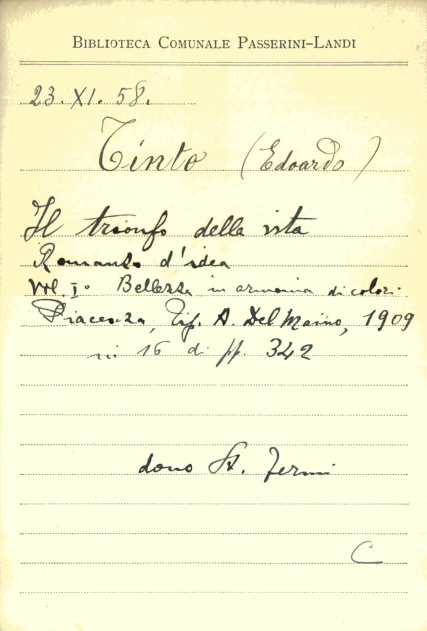 BIBLIOTECA COMUNALE PASSERINI-LANDI
23. XI. 58.
Tinto (Edoardo)
Il trionfo della vita
Romanzo d'idea
Vol. I° Bellezza in armonia di colori.
Piacenza, Tip. A. Del Maino, 1909
in 16 di pp. 342
dono St. Fermi
C